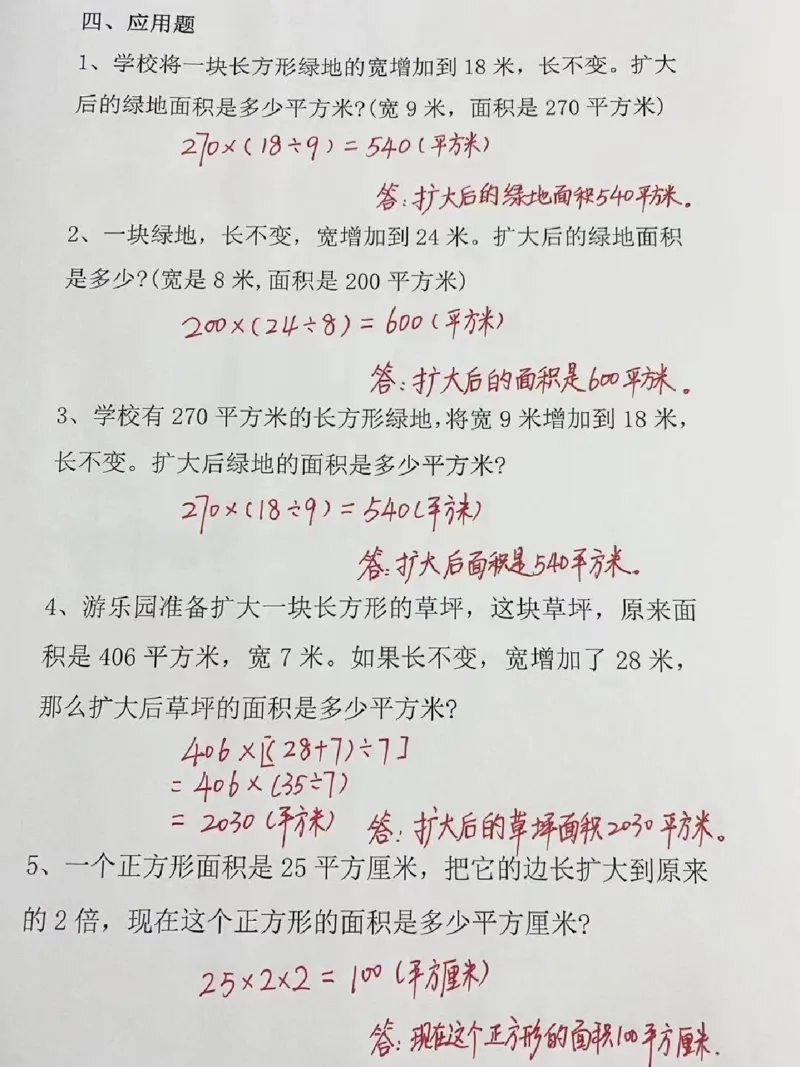 四、应用题
1、学校将一块长方形绿地的宽增加到18米，长不变。扩大
后的绿地面积是多少平方米?(宽9米，面积是270平方米)
270×(18÷9)=540(平方米)
答:扩大后的绿地面积540平方米。
2、一块绿地，长不变，宽增加到24米。扩大后的绿地面积
是多少?(宽是8米,面积是200平方米)
200×(24÷8)=600(平方米)
答:扩大后的面积是600平方米。
3、学校有270平方米的长方形绿地,将宽9米增加到18米，
长不变。扩大后绿地的面积是多少平方米?
270×(18÷9)=540(平方米)
答:扩大后面积是540平方米。
4、游乐园准备扩大一块长方形的草坪，这块草坪，原来面
积是406平方米，宽7米。如果长不变，宽增加了28米，
那么扩大后草坪的面积是多少平方米?
406×[(28+7)÷7]
=406×(35÷7)
=2030(平方米) 答:扩大后的草坪面积2030平方米。
5、一个正方形面积是25平方厘米，把它的边长扩大到原来
的2倍，现在这个正方形的面积是多少平方厘米?
25×2×2=100(平方厘米)
答:现在这个正方形的面积100平方厘米.